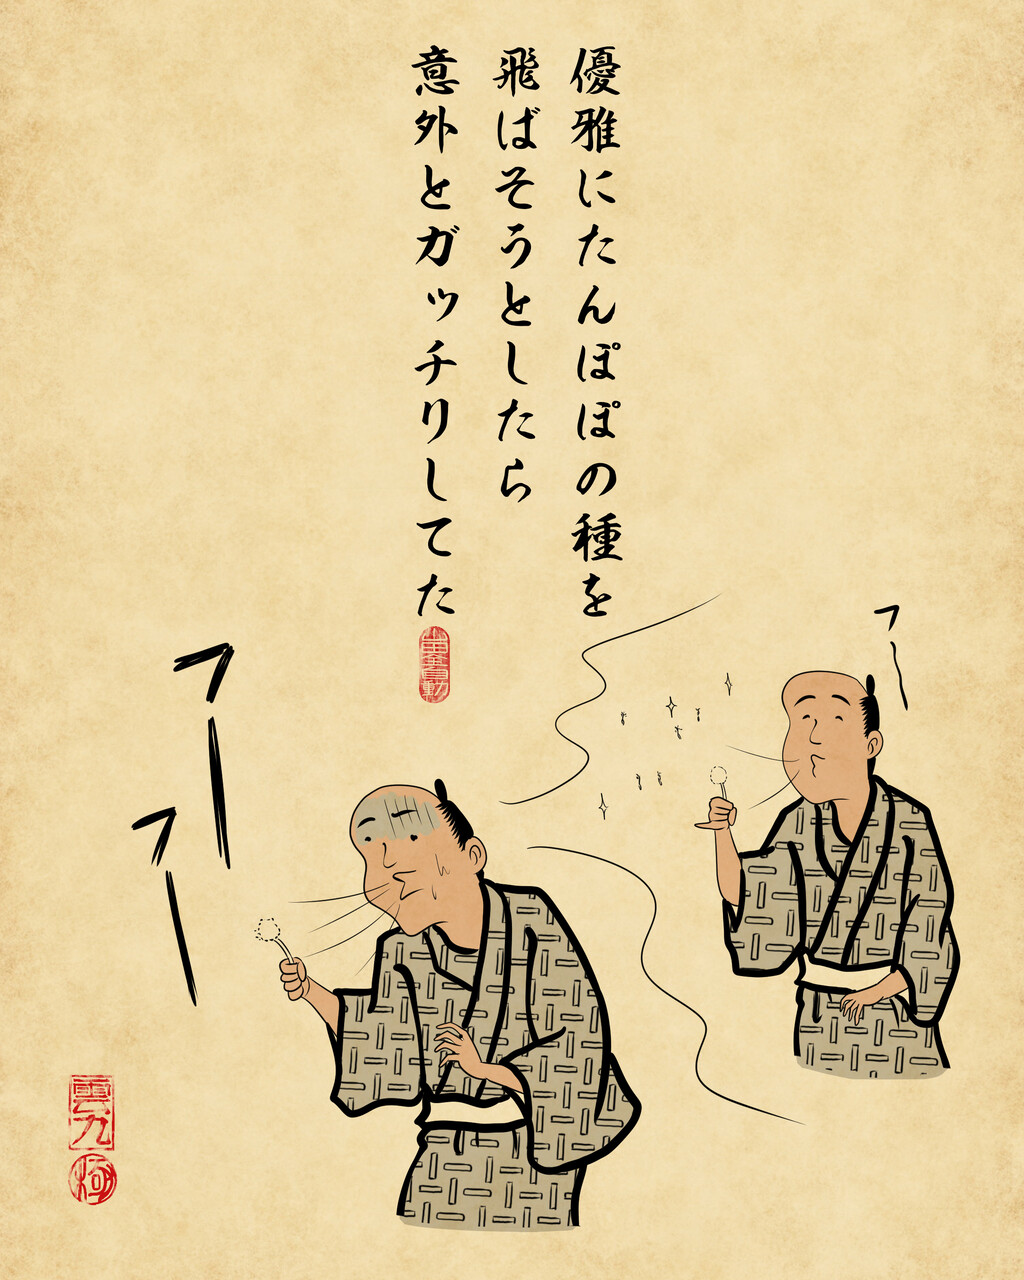 優雅にたんぽぽの種を
飛ばそうとしたら
意外とガッチリしてた
山田全自動
フー
フー
フー